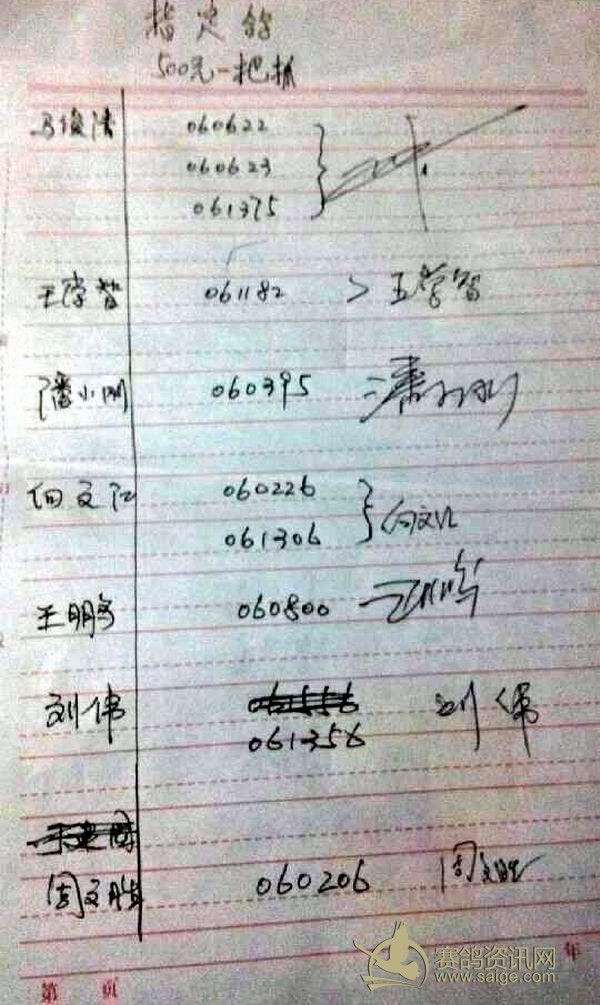 指定鸽
500元一把抓
马俊清 060622
060623
061375
王学智 061182 > 王学智
潘小刚 060395 潘小刚
向文江 060226
061306 向文江
王明 060800
刘伟 061356 刘伟
周文胜 060206 周文胜
第 页
年
赛鸽资讯网
www.saige.com